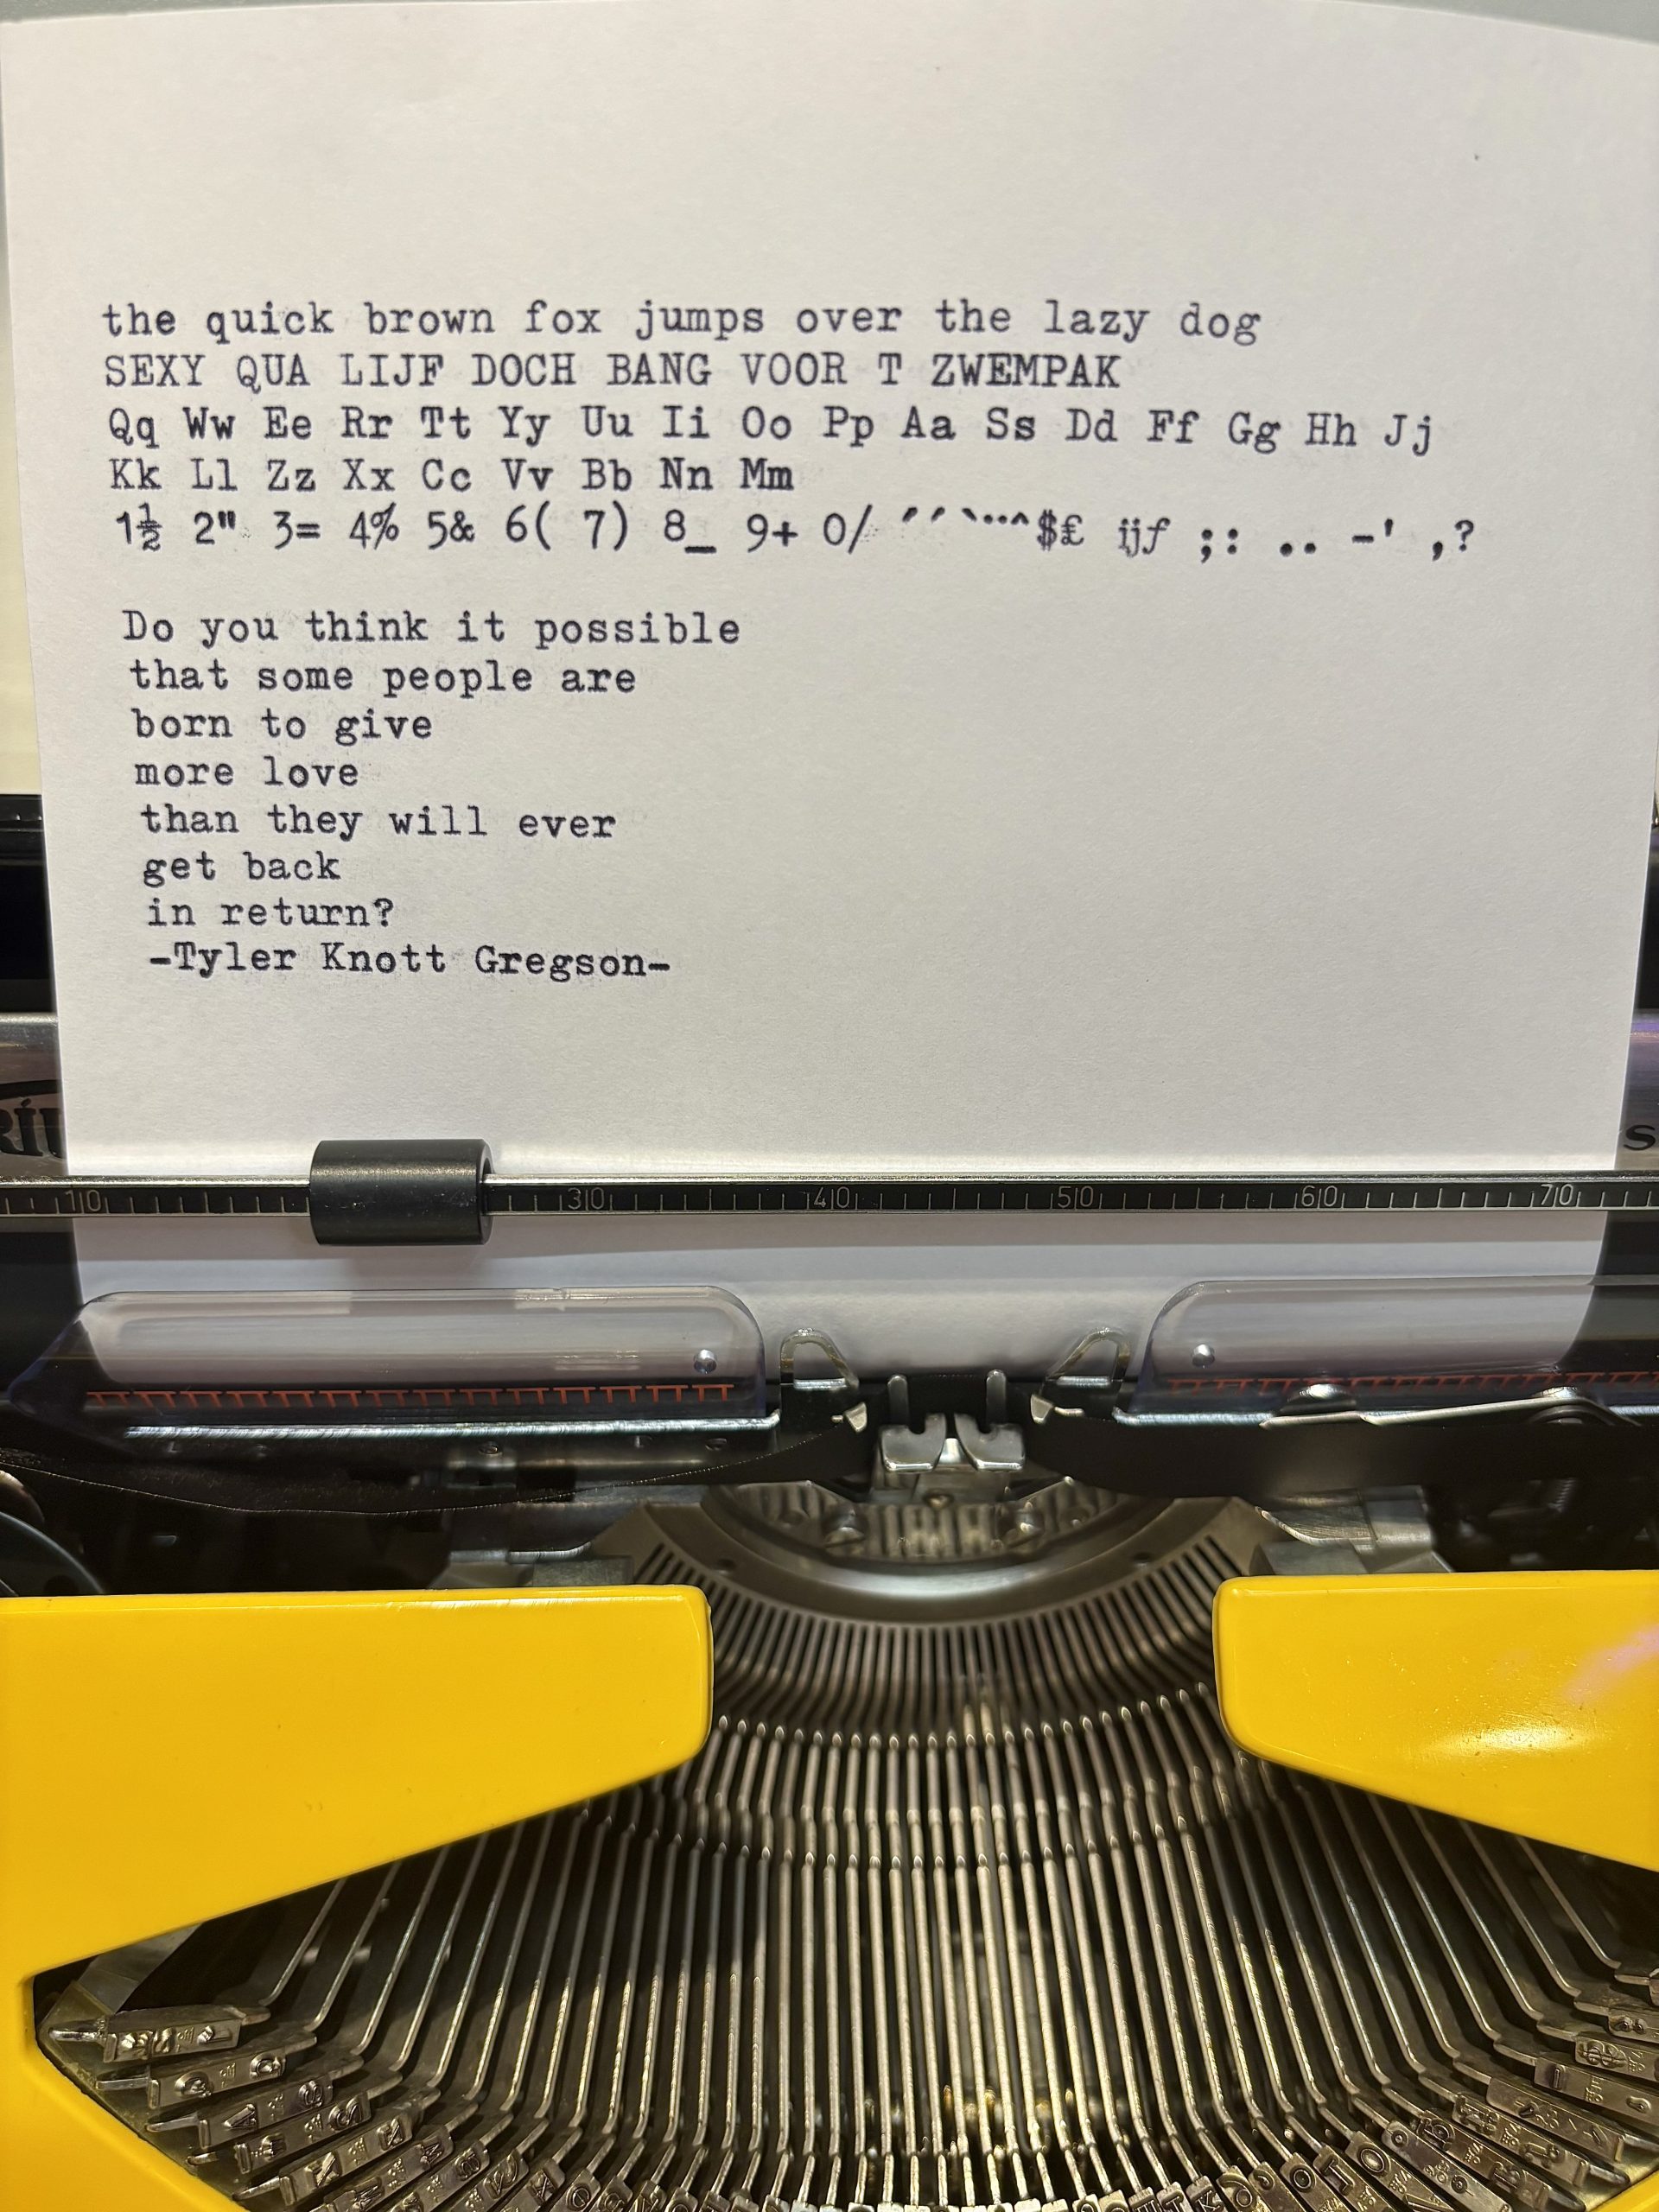 the quick brown fox jumps over the lazy dog
SEXY QUA LIJF DOCH BANG VOOR T ZWEMPAK
Qq Ww Ee Rr Tt Yy Uu Ii Oo Pp Aa Ss Dd Ff Gg Hh Jj
Kk Ll Zz Xx Cc Vv Bb Nn Mm
1½ 2" 3= 4% 5& 6( 7) 8_ 9+ 0/ ´´`¨^$£ ijƒ ;: .. -' ,?
Do you think it possible
that some people are
born to give
more love
than they will ever
get back
in return?
-Tyler Knott Gregson-
10 30 40 50 60 70